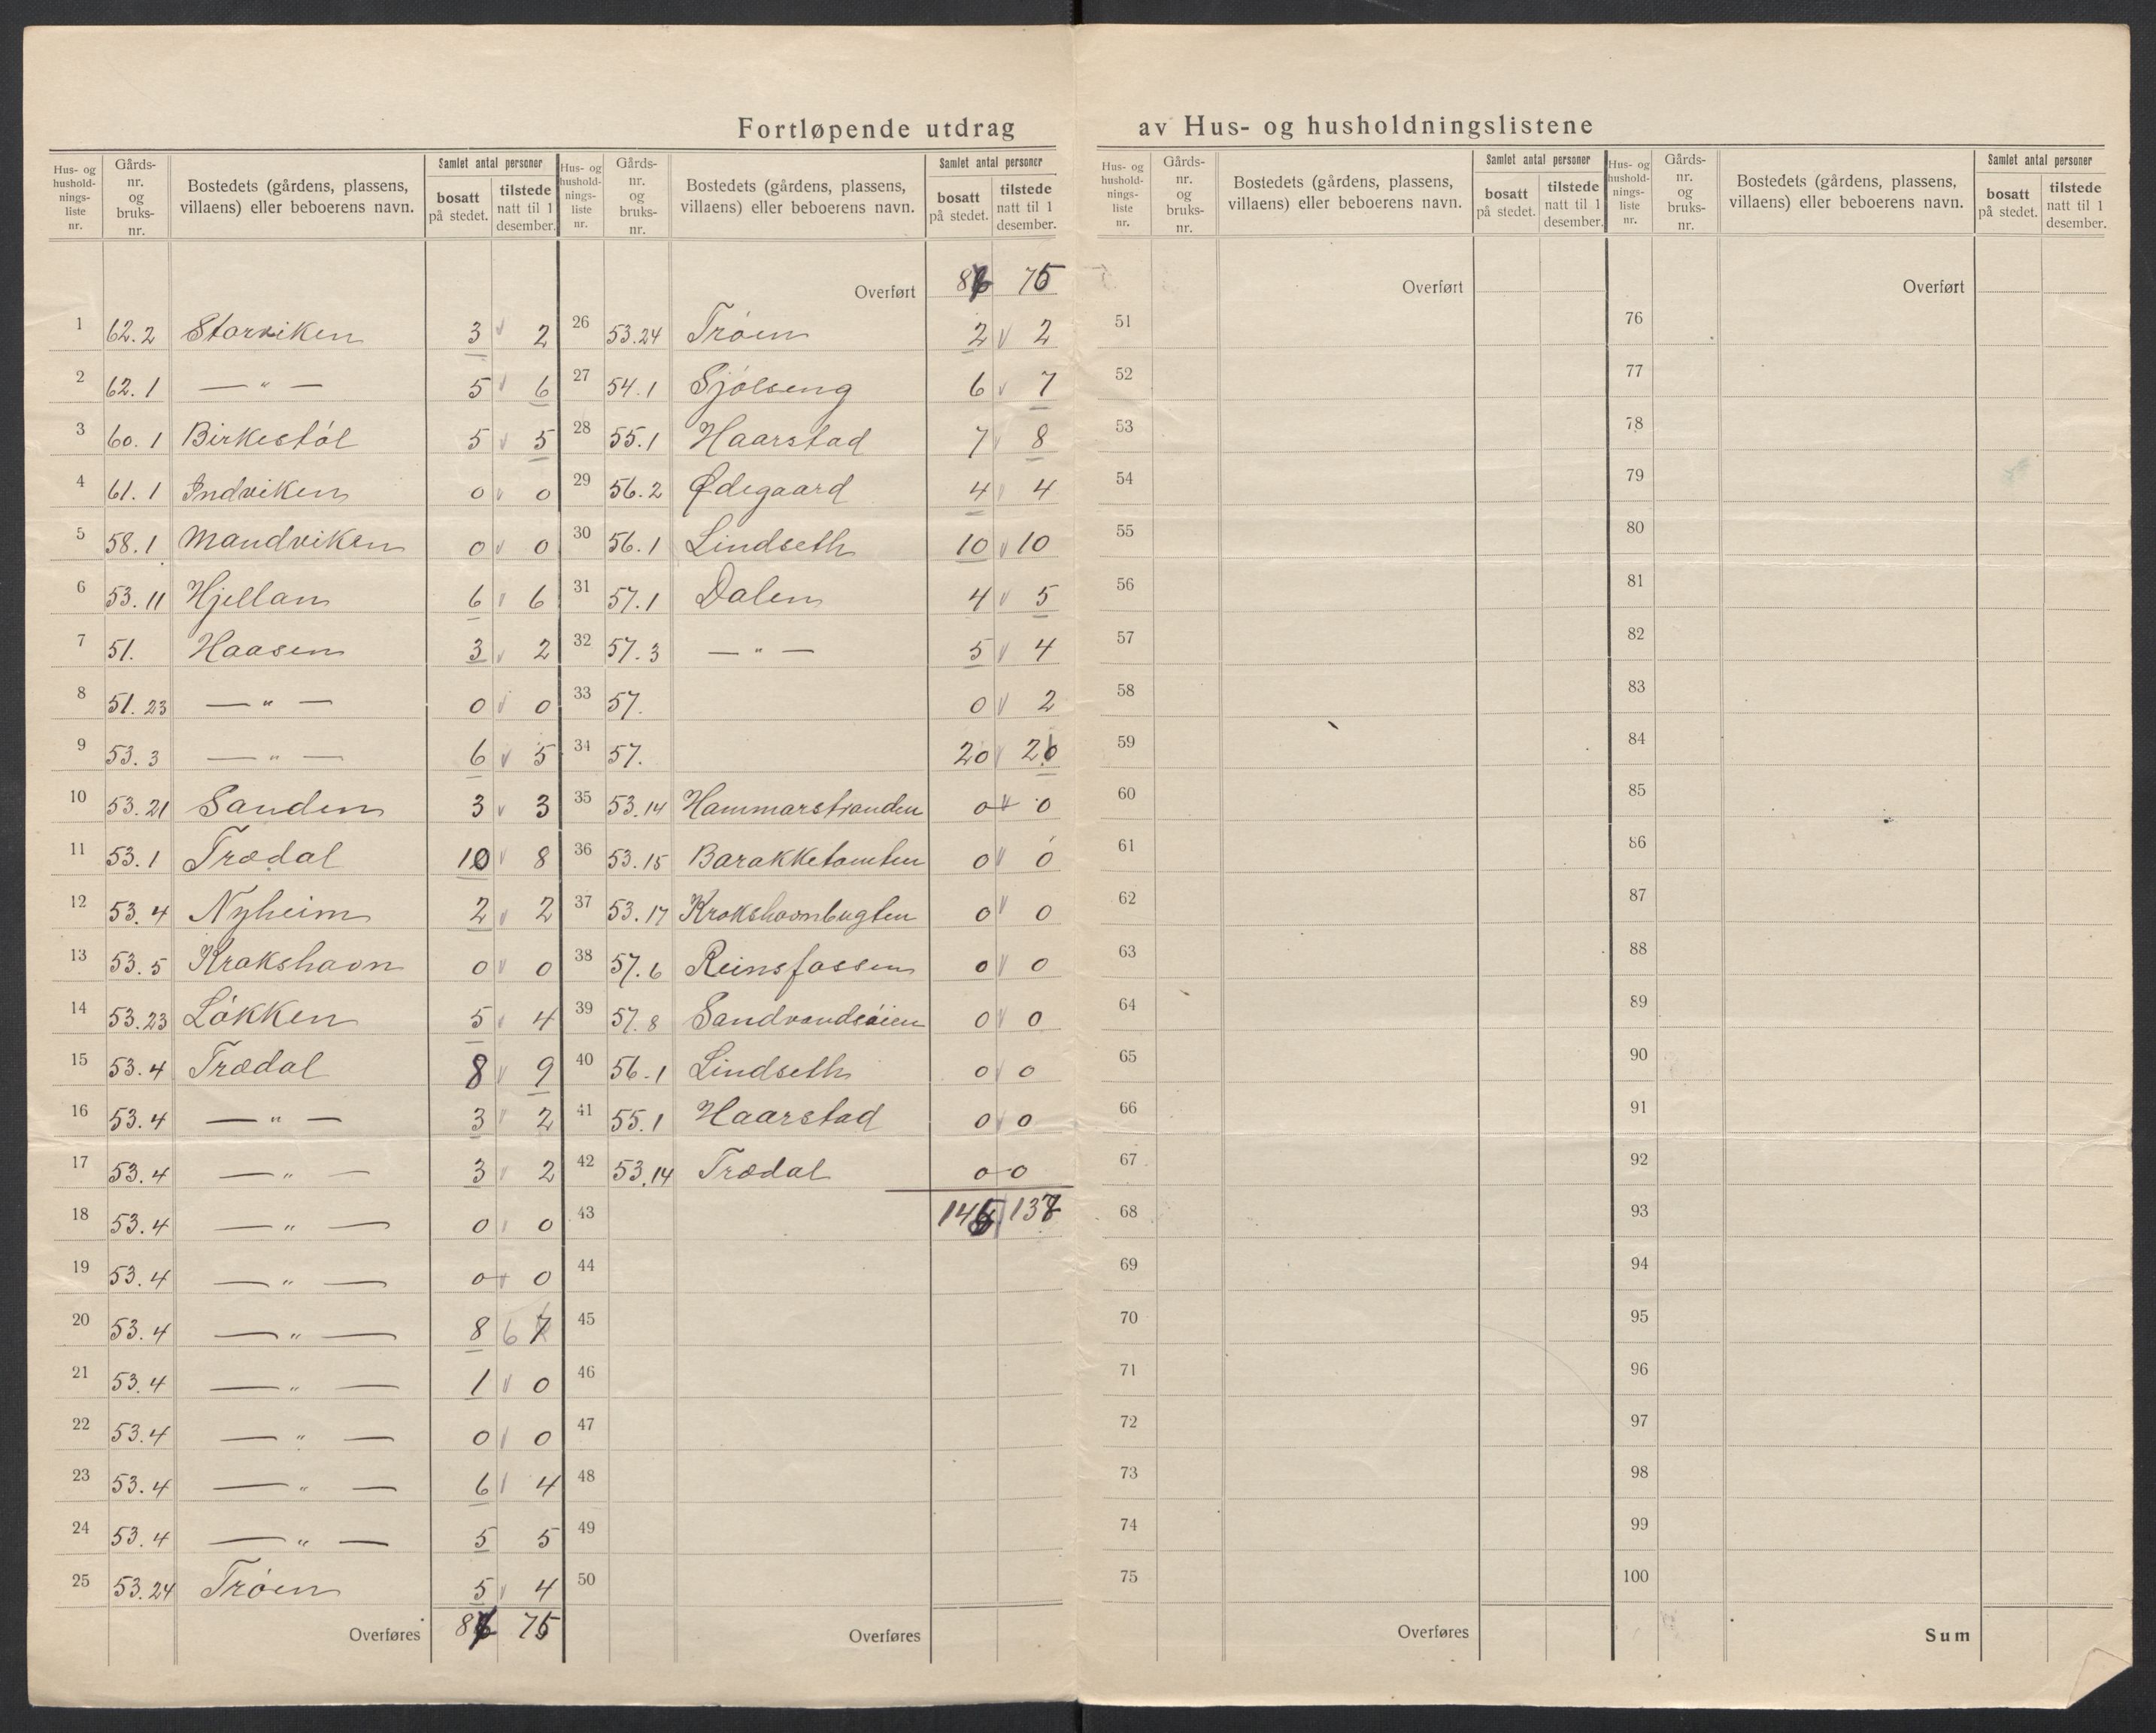 Fortløpende utdrag av Hus- og husholdningslistene
Hus- og husholdningsliste nr.
Gårds- nr. og bruks- nr.
Bostedets (gårdens, plassens, villaens) eller beboerens navn.
Samlet antal personer
bosatt på stedet.
tilstede natt til 1 desember.
Hus- og husholdningsliste nr.
Gårds- nr. og bruks- nr.
Bostedets (gårdens, plassens, villaens) eller beboerens navn.
Samlet antal personer
bosatt på stedet.
tilstede natt til 1 desember.
Hus- og husholdningsliste nr.
Gårds- nr. og bruks- nr.
Bostedets (gårdens, plassens, villaens) eller beboerens navn.
Samlet antal personer
bosatt på stedet.
tilstede natt til 1 desember.
Hus- og husholdningsliste nr.
Gårds- nr. og bruks- nr.
Bostedets (gårdens, plassens, villaens) eller beboerens navn.
Samlet antal personer
bosatt på stedet.
tilstede natt til 1 desember.
1 62.2 Storviken 3 2
2 62.1 — " — 5 6
3 60.1 Birkestøl 5 5
4 61.1 Indviken 0 0
5 58.1 Mandviken 0 0
6 53.11 Hjellan 6 6
7 51. Haasen 3 2
8 51.23 — " — 0 0
9 53.3 — " — 6 5
10 53.21 Sanden 3 3
11 53.1 Trædal 10 8
12 53.4 Nyheim 2 2
13 53.5 Krokshavn 0 0
14 53.23 Løkken 5 4
15 53.4 Trædal 8 9
16 53.4 — " — 3 2
17 53.4 — " — 3 2
18 53.4 — " — 0 0
19 53.4 — " — 0 0
20 53.4 — " — 8 6 7
21 53.4 — " — 1 0
22 53.4 — " — 0 0
23 53.4 — " — 6 4
24 53.4 — " — 5 5
25 53.24 Trøen 5 4
Overføres 75
Overført 75
26 53.24 Trøen 2 2
27 54.1 Sjølseng 6 7
28 55.1 Haarstad 7 8
29 56.2 Ødegaard 4 4
30 56.1 Lindseth 10 10
31 57.1 Dalen 4 5
32 57.3 — " — 5 4
33 57. 0 2
34 57. 20
35 53.14 Hammarstranden 0 0
36 53.15 Barakketomten 0 0
37 53.17 Krokshavnbugten 0 0
38 57.6 Reinsfossen 0 0
39 57.8 Sandvandsøien 0 0
40 56.1 Lindseth 0 0
41 55.1 Haarstad 0 0
42 53.14 Trædal 0 0
43
44
45
46
47
48
49
50
Overføres
Overført
51
52
53
54
55
56
57
58
59
60
61
62
63
64
65
66
67
68
69
70
71
72
73
74
75
Overføres
Overført
76
77
78
79
80
81
82
83
84
85
86
87
88
89
90
91
92
93
94
95
96
97
98
99
100
Sum